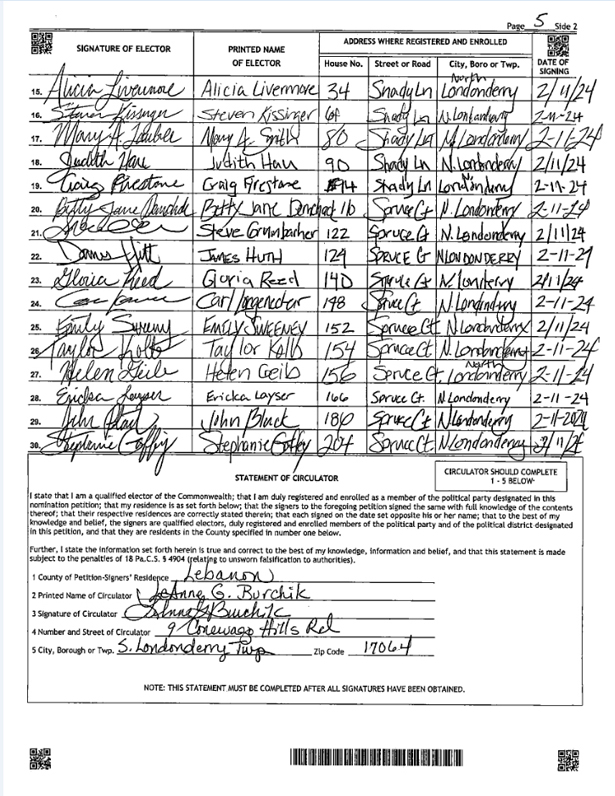 Page 5 Side 2
SIGNATURE OF ELECTOR PRINTED NAME OF ELECTOR ADDRESS WHERE REGISTERED AND ENROLLED DATE OF SIGNING
House No. Street or Road City, Boro or Twp.
15. Alicia Livermore Alicia Livermore 34 Shady Ln North Londonderry 2/11/24
16. Steven Kissinger Steven Kissinger Shady Ln N. Londonderry 2-11-24
17. Mary A. 80 Shady Ln N Londonderry 2-11-24
18. Judith Judith 90 Shady Ln N. Londonderry 2/11/24
19. Craig Firestone Craig Firestone 94 Shady Ln Londonderry 2-11-24
20. Betty Jane Betty Jane Spruce Ct N. Londonderry 2-11-24
21. Steve 122 Spruce Ct N. Londonderry 2/11/24
22. James Hutt JAMES HUTH SPRUCE Ct N LONDONDERRY 2-11-24
23. Gloria Reed Gloria Reed 140 Spruce Ct 2/11/24
24. Carl 148 Spruce Ct 2-11-24
25. Emily Sweeny EMILY SWEENEY 152 Spruce Ct N. Londonderry 2/11/24
26. Taylor Kolb Taylor Kolb 154 Spruce Ct. N. Londonderry 2-11-24
27. Helen Geib Helen Geib 156 Spruce Ct. North Londonderry 2-11-24
28. Ericka Layser Ericka Layser 166 Spruce Ct. N. Londonderry 2-11-24
29. John John 180 Spruce Ct N Londonderry 2-11-2024
30. Stephanie Stephanie 204 Spruce Ct N Londonderry 2/11/24
STATEMENT OF CIRCULATOR
CIRCULATOR SHOULD COMPLETE 1 - 5 BELOW
I state that I am a qualified elector of the Commonwealth; that I am duly registered and enrolled as a member of the political party designated in this
nomination petition; that my residence is as set forth below; that the signers to the foregoing petition signed the same with full knowledge of the contents
thereof; that their respective residences are correctly stated therein; that each signed on the date set opposite his or her name; that to the best of my
knowledge and belief, the signers are qualified electors, duly registered and enrolled members of the political party and of the political district designated
in this petition, and that they are residents in the County specified in number one below.
Further, I state the information set forth herein is true and correct to the best of my knowledge, information and belief, and that this statement is made
subject to the penalties of 18 Pa.C.S. § 4904 (relating to unsworn falsification to authorities).
1 County of Petition-Signers' Residence Lebanon
2 Printed Name of Circulator LeAnne G. Burchik
3 Signature of Circulator LeAnne G Burchik
4 Number and Street of Circulator 9 Conewago Hills Rd
5 City, Borough or Twp. S. Londonderry Twp Zip Code 17064
NOTE: THIS STATEMENT MUST BE COMPLETED AFTER ALL SIGNATURES HAVE BEEN OBTAINED.